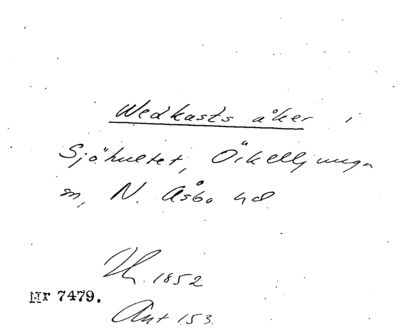 Wedkasts åker i
Sjöhultet, Örkelljunga
sn, N. Åsbo hd
Lh. 1852
Nr 7479.
Akt 153.